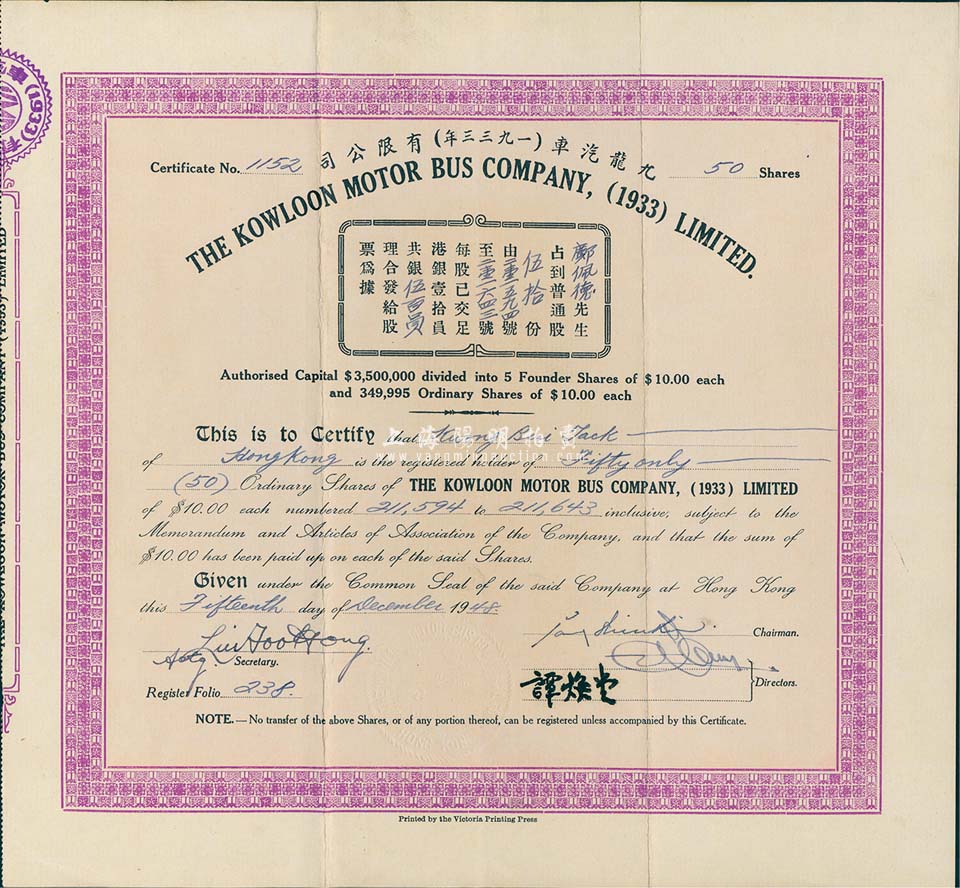 九龍汽車(一九三三年)有限公司
Certificate No. 1152
50 Shares
THE KOWLOON MOTOR BUS COMPANY, (1933) LIMITED.
鄺佩德先生
占到普通股
伍拾份
由二壹一五九四號
至二壹一六四三號
每股已交足
港銀壹拾員
共銀伍百員
理合發給股
票為據
Authorised Capital $3,500,000 divided into 5 Founder Shares of $10.00 each
and 349,995 Ordinary Shares of $10.00 each
This is to Certify that Kwong Bui Tack
of HongKong is the registered holder of Fifty only
(50) Ordinary Shares of THE KOWLOON MOTOR BUS COMPANY, (1933) LIMITED
of $10.00 each numbered 211,594 to 211,643 inclusive, subject to the
Memorandum and Articles of Association of the Company, and that the sum of
$10.00 has been paid up on each of the said Shares.
Given under the Common Seal of the said Company at Hong Kong
this Fifteenth day of December 1948.
Chairman.
Actg Secretary.
譚煥堂
Directors.
Register Folio 238.
NOTE.—No transfer of the above Shares, or of any portion thereof, can be registered unless accompanied by this Certificate.
Printed by the Victoria Printing Press
上海陽明拍賣
www.yangmingauction.com
(1933)